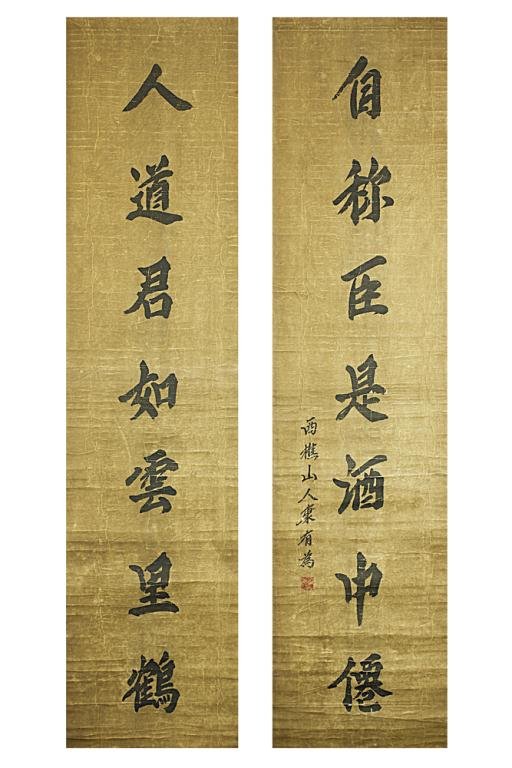 自称臣是酒中僊
西樵山人康有為
人道君如雲里鶴